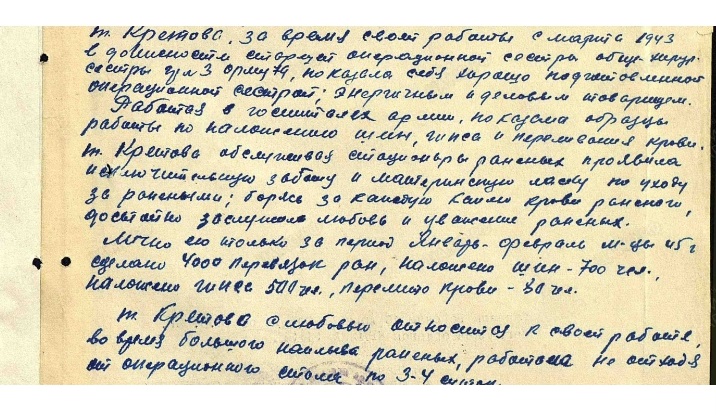 т. Кретова, за время своей работы с марта 1943
в должности старшей операционной сестры обще-хирур.
сестры 3 армии, показала себя хорошо подготовленной
операционной сестрой; энергичным и деловым товарищем.
Работая в госпиталях армии, показала образцы
работы по наложению шин, гипса и переливания крови.
т. Кретова обслуживая стационары раненых проявила
исключительную заботу и материнскую ласку по уходу
за ранеными; борясь за каждую каплю крови раненого,
достойно заслужила любовь и уважение раненых.
Лично ею только за период Январь-февраль м-цы 45 г
сделано 4000 перевязок ран, наложено шин - 700 чел.,
наложено гипса 500 чел., перелито крови - 80 чел.
т. Кретова с любовью относится к своей работе,
во время большого наплыва раненых, работала не отходя
от операционного стола по 3-4 суток.